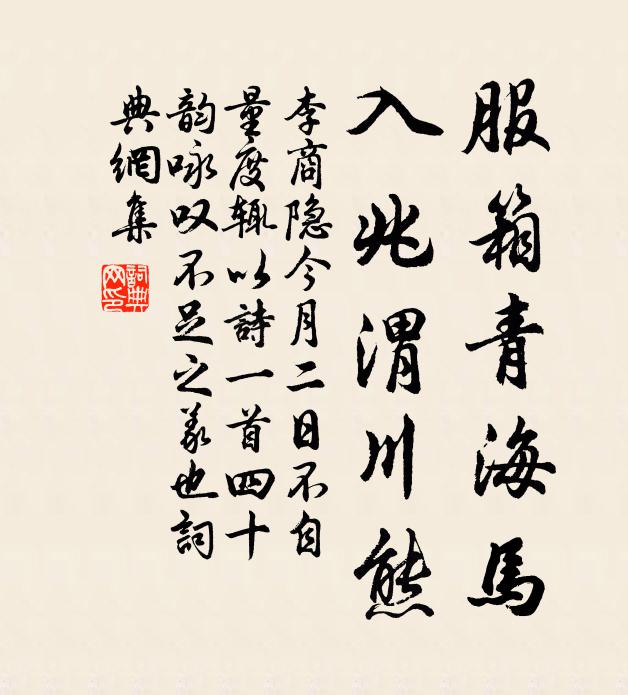 服箱青海馬
入兆渭川熊
李商隐今月二日不自
量度辄以詩一首四十
韵咏叹不足之义也詞
典網集
詞典网印